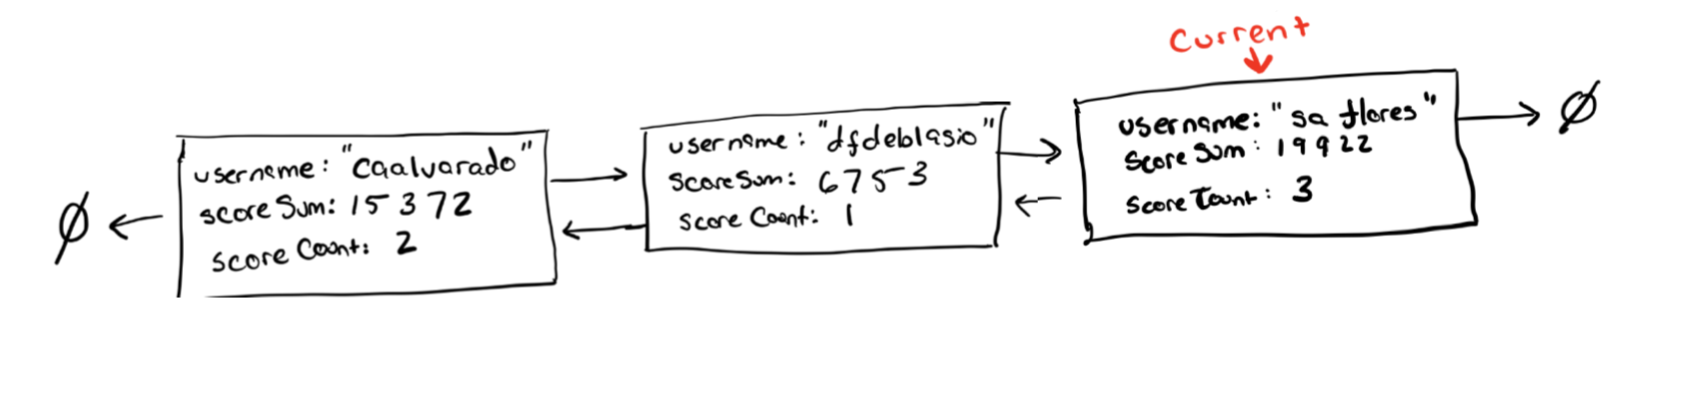 Current
username: "caalvarado"
scoreSum: 15372
score Count: 2
username: "dfdeblasio"
ScoreSum: 6753
score Count: 1
username: "saflores"
Score Sum: 19922
score Count: 3